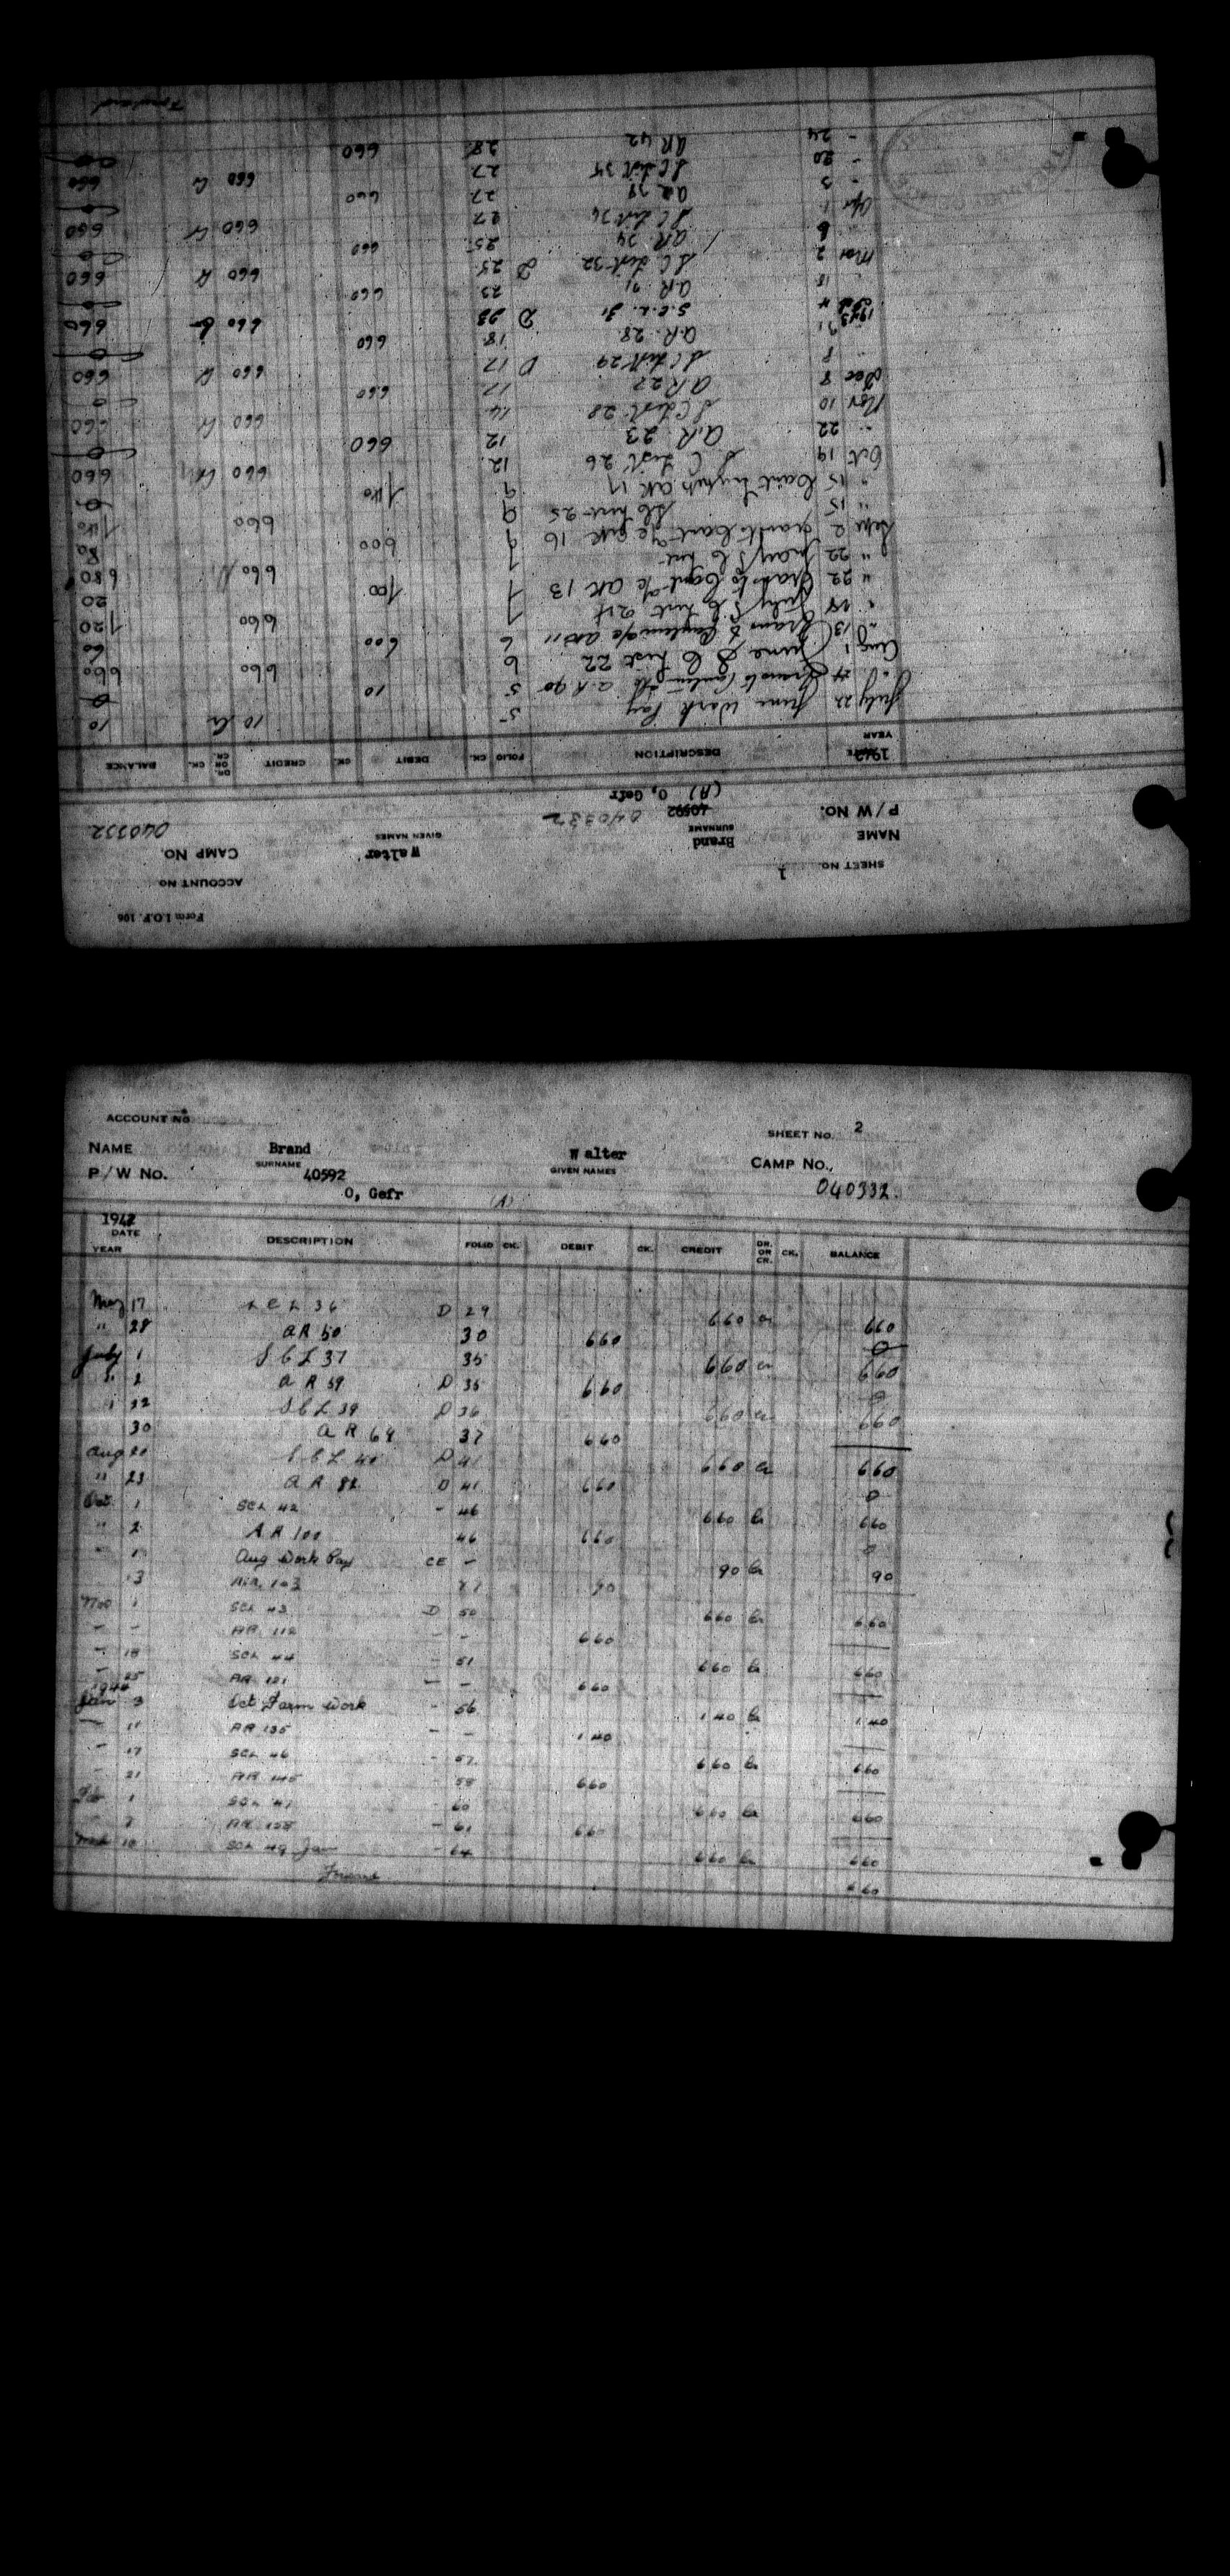 Form I.O.F. 106
ACCOUNT NO
SHEET NO. 1
NAME Brand Walter CAMP NO.
SURNAME GIVEN NAMES 040332
P/W NO. 40592 040332
(A) O, Gefr
1942
DATE
YEAR DESCRIPTION FOLIO CK. DEBIT CK. CREDIT DR. OR CR. CK. BALANCE
July 22 June Work Pay 5 10 Cr 10
5 10 0
Aug 1 June S C List 22 6 660 660
" 13 6 600 60
" 18 July S C List 24 7 660 720
" 22 Trans to Cant a/c AR 13 7 700 20
" 22 7 660 680
Sept 2 Trans to Cant a/c AR 16 9 600 80
" 15 SC List 25 9 660 740
" 15 AR 17 9 740 0
Oct 19 S C List 26 12 660 Cr 660
" 22 A.R. 23 12 660 0
Nov 10 S C List 28 14 660 Cr 660
Dec 8 AR 27 17 660 0
" 8 S C List 29 D 17 660 Cr 660
31 A.R. 28 18 660 0
1943
Feb 4 S.C.L. 31 D 23 660 Cr 660
18 A.R. 31 23 660 0
Mar 2 S C List 32 D 25 660 Cr 660
" 6 AR 34 25 660 0
Apr 1 S C List 34 27 660 Cr 660
- 5 AR 39 27 660 0
- 20 S C List 35 27 660 Cr 660
- 24 AR 42 28 660 0
Forward
ACCOUNT NO.
SHEET NO. 2
NAME Brand Walter CAMP NO.,
SURNAME GIVEN NAMES
P/W NO. 40592 040332.
O, Gefr (A)
DATE
YEAR DESCRIPTION FOLIO CK. DEBIT CK. CREDIT DR. OR CR. CK. BALANCE
May 17 S C L 36 D 29 660 Cr 660
" 28 AR 50 30 660 0
July 1 S C L 37 35 660 Cr 660
" 2 AR 59 D 35 660 0
" 22 S C L 39 D 36 660 Cr 660
30 AR 69 37 660
Aug 20 S C L 40 D 41 660 Cr 660
" 23 AR 82 D 41 660 0
Oct 1 SCL 42 - 46 660 Cr 660
" 2 AR 100 46 660 0
" Aug Work Pay CE - 90 Cr 90
13 AR 103 47 90
Nov 1 SCL 43 D 50 660 Cr 660
- - AR 112 - - 660
- 18 SCL 44 - 51 660 Cr 660
- 25 AR 121 - - 660
1944
Jan 3 Oct Farm Work - 56 1 40 Cr 1 40
- 11 AR 135 - - 1 40
- 17 SCL 46 - 57 660 Cr 660
- 21 AR 145 - 58 660
Feb 1 SCL 47 - 60 660 Cr 660
- 7 AR 158 - 61 660
Mar 10 SCL 49 Jan - 64 660 Cr 660
Forward 660